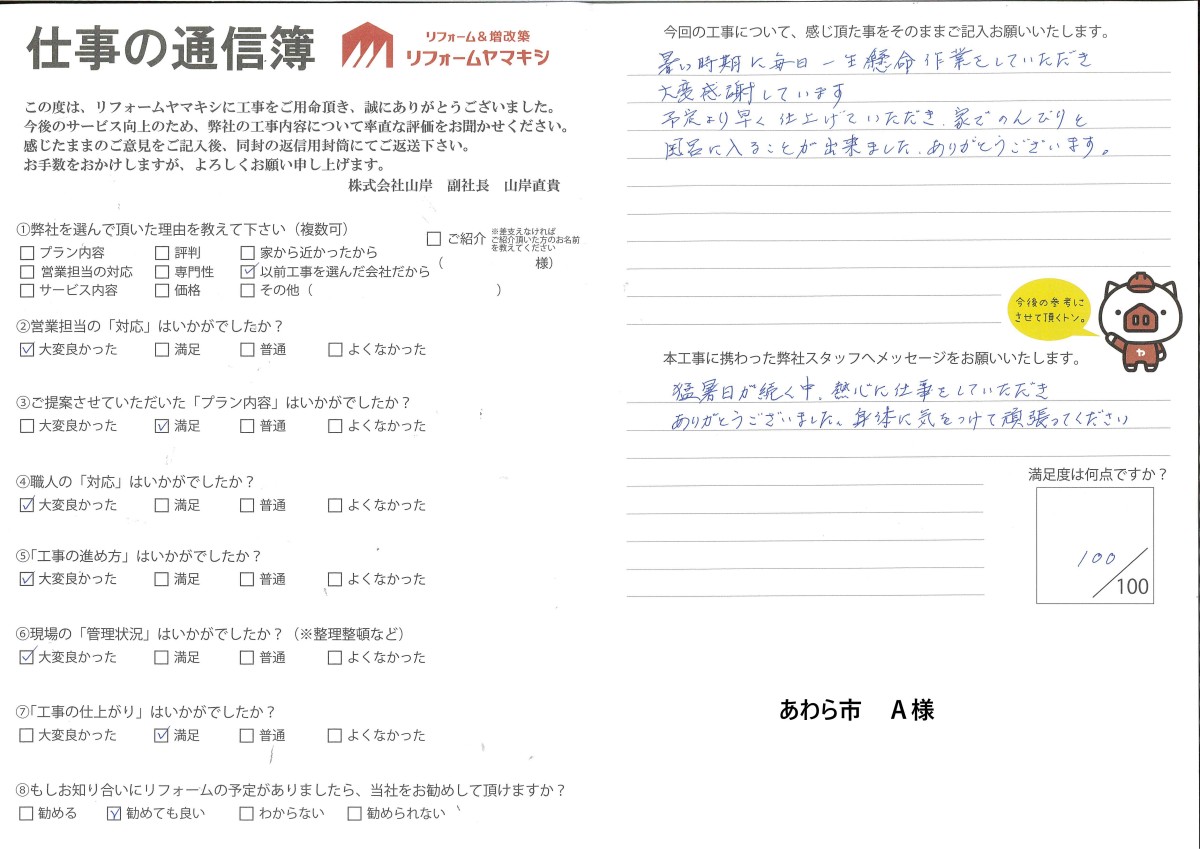 仕事の通信簿
リフォーム＆増改築
リフォームヤマキシ
この度は、リフォームヤマキシに工事をご用命頂き、誠にありがとうございました。
今後のサービス向上のため、弊社の工事内容について率直な評価をお聞かせください。
感じたままのご意見をご記入後、同封の返信用封筒にてご返送下さい。
お手数をおかけしますが、よろしくお願い申し上げます。
株式会社山岸　副社長　山岸直貴
①弊社を選んで頂いた理由を教えて下さい（複数可）
□ プラン内容　□ 評判　□ 家から近かったから
□ 営業担当の対応　□ 専門性　☑ 以前工事を選んだ会社だから
□ サービス内容　□ 価格　□ その他（　　　）
□ ご紹介
※差支えなければ
ご紹介頂いた方のお名前
を教えてください
（　　　様）
②営業担当の「対応」はいかがでしたか？
☑ 大変良かった　□ 満足　□ 普通　□ よくなかった
③ご提案させていただいた「プラン内容」はいかがでしたか？
□ 大変良かった　☑ 満足　□ 普通　□ よくなかった
④職人の「対応」はいかがでしたか？
☑ 大変良かった　□ 満足　□ 普通　□ よくなかった
⑤「工事の進め方」はいかがでしたか？
☑ 大変良かった　□ 満足　□ 普通　□ よくなかった
⑥現場の「管理状況」はいかがでしたか？（※整理整頓など）
☑ 大変良かった　□ 満足　□ 普通　□ よくなかった
⑦「工事の仕上がり」はいかがでしたか？
□ 大変良かった　☑ 満足　□ 普通　□ よくなかった
⑧もしお知り合いにリフォームの予定がありましたら、当社をお勧めして頂けますか？
□ 勧める　☑ 勧めても良い　□ わからない　□ 勧められない
今回の工事について、感じ頂た事をそのままご記入お願いいたします。
暑い時期に毎日一生懸命作業をしていただき
大変感謝しています
予定より早く仕上げていただき、家でのんびりと
風呂に入ることが出来ました、ありがとうございます。
今後の参考に
させて頂くトン。
ヤ
本工事に携わった弊社スタッフへメッセージをお願いいたします。
猛暑日が続く中、熱心に仕事をしていただき
ありがとうございました、身体に気をつけて頑張ってください
満足度は何点ですか？
100／100
あわら市　A様